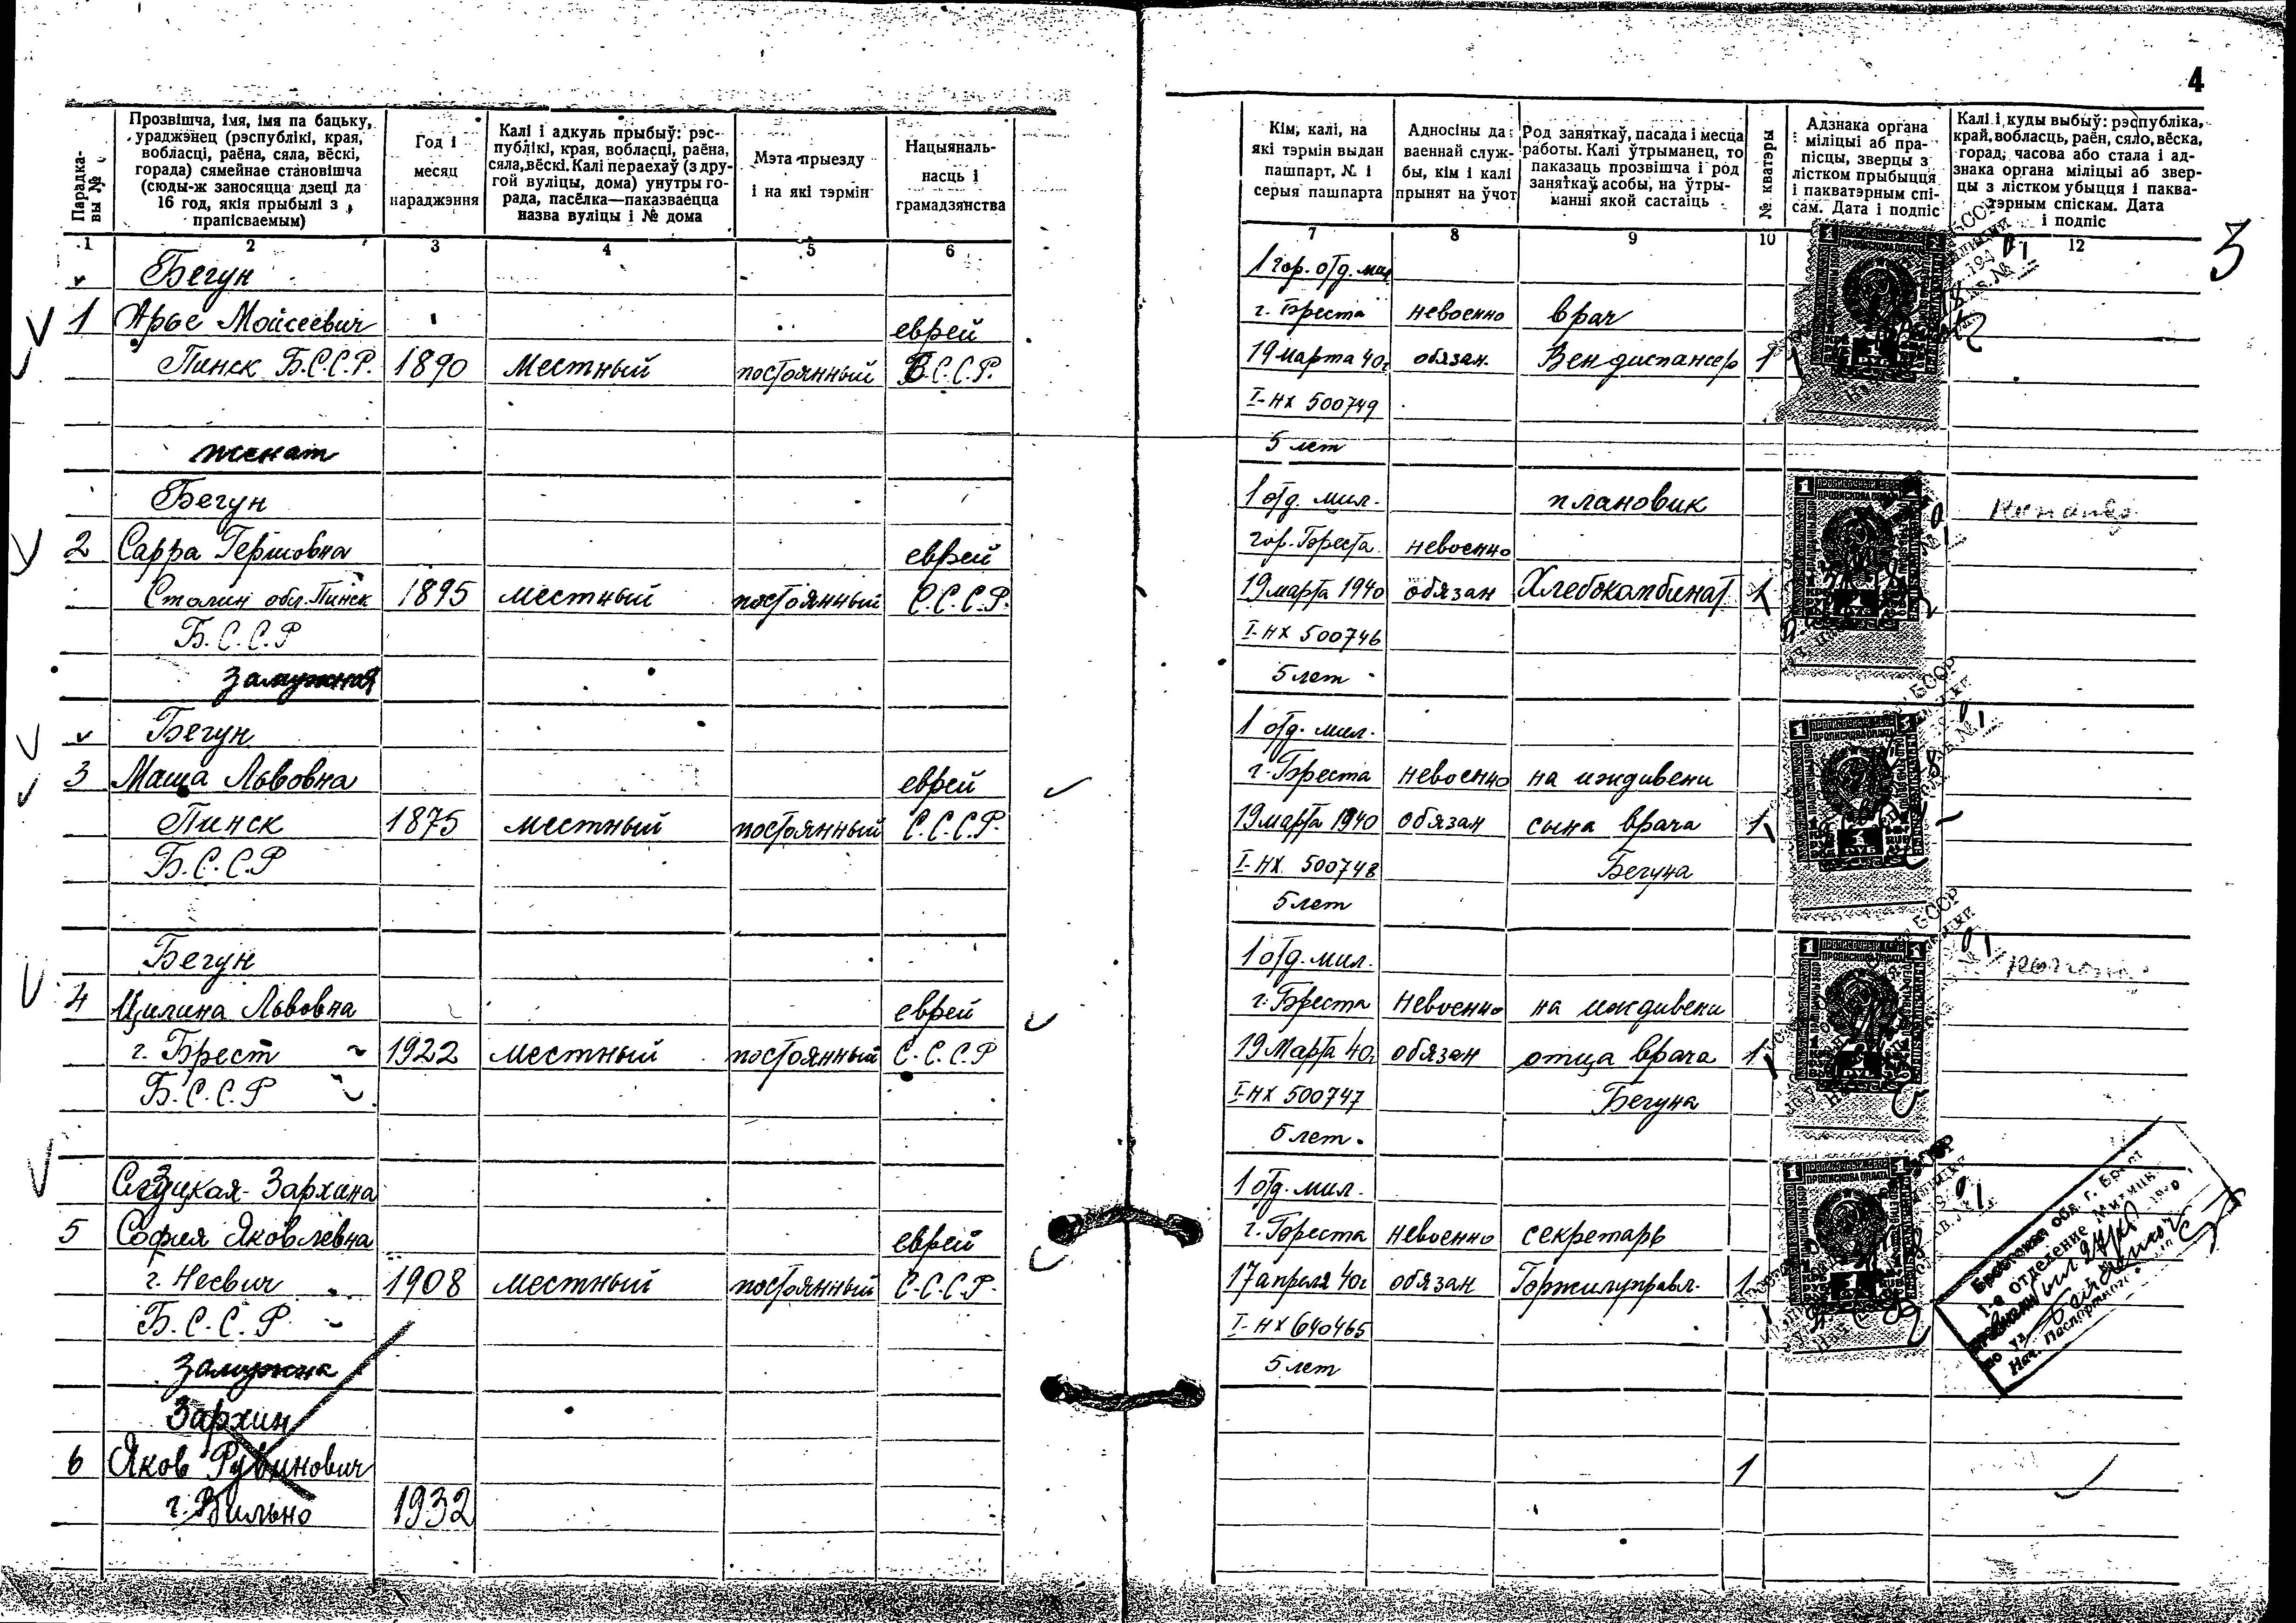 4
3
Парадка-
вы №
Прозвішча, імя, імя па бацьку,
ураджэнец (рэспублікі, края,
вобласці, раёна, сяла, вёскі,
горада) сямейнае становішча
(сюды-ж заносяцца дзеці да
16 год, якія прыбылі з
прапісваемым)
Год і
месяц
нараджэння
Калі і адкуль прыбыў: рэс-
публікі, края, вобласці, раёна,
сяла, вёскі. Калі пераехаў (з дру-
гой вуліцы, дома) унутры го-
рада, пасёлка—паказваецца
назва вуліцы і № дома
Мэта прыезду
і на які тэрмін
Нацыяналь-
насць і
грамадзянства
Кім, калі, на
які тэрмін выдан
пашпарт, № і
серыя пашпарта
Адносіны да
ваеннай служ-
бы, кім і калі
прынят на ўчот
Род заняткаў, пасада і месца
работы. Калі ўтрыманец, то
паказаць прозвішча і род
заняткаў асобы, на ўтры-
манні якой састаіць
№ кватэры
Адзнака органа
міліцыі аб пра-
пісцы, зверцы з
лістком прыбыцця
і пакватэрным спі-
сам. Дата і подпіс
Калі і куды выбыў: рэспубліка,
край, вобласць, раён, сяло, вёска,
горад; часова або стала і ад-
знака органа міліцыі аб звер-
цы з лістком убыцця і паква-
тэрным спіскам. Дата
і подпіс
1 2 3 4 5 6 7 8 9 10 12
Бегун 1 гор. отд. мил
1 Арье Моисеевич еврей г. Бреста невоенно врач
Пинск Б.С.С.Р. 1890 местный постоянный С.С.Р. 19 марта 40г обязан. Вендиспансер 1
I-НХ 500749
женат 5 лет
Бегун 1 отд. мил. плановик
2 Сарра Гершовна еврей гор. Бреста невоенно
Столин обл. Пинск 1895 местный постоянный С.С.С.Р. 19 марта 1940 обязан Хлебокомбинат 1
Б.С.С.Р I-НХ 500746
замужная 5 лет
Бегун 1 отд. мил.
3 Маша Львовна еврей г. Бреста невоенно на иждивени
Пинск 1875 местный постоянный С.С.С.Р. 19 марта 1940 обязан сына врача 1
Б.С.С.Р I-НХ 500748 Бегуна
5 лет
Бегун 1 отд. мил.
4 Цилина Львовна еврей г. Бреста невоенно на иждивени
г. Брест 1922 местный постоянный С.С.С.Р 19 марта 40г обязан отца врача 1
Б.С.С.Р I-НХ 500747 Бегуна
5 лет.
Зархина 1 отд. мил.
5 София Яковлевна еврей г. Бреста невоенно секретарь
г. Несвич 1908 местный постоянный С.С.С.Р. 17 апреля 40г обязан Горжилуправл. 1
Б.С.С.Р I-НХ 640465
замужна 5 лет
Зархин
6 Яков Рувинович 1
г. Вильно 1932
Брестская обл. г. Брест
1-е отделение Милиции
Нач. Паспортного